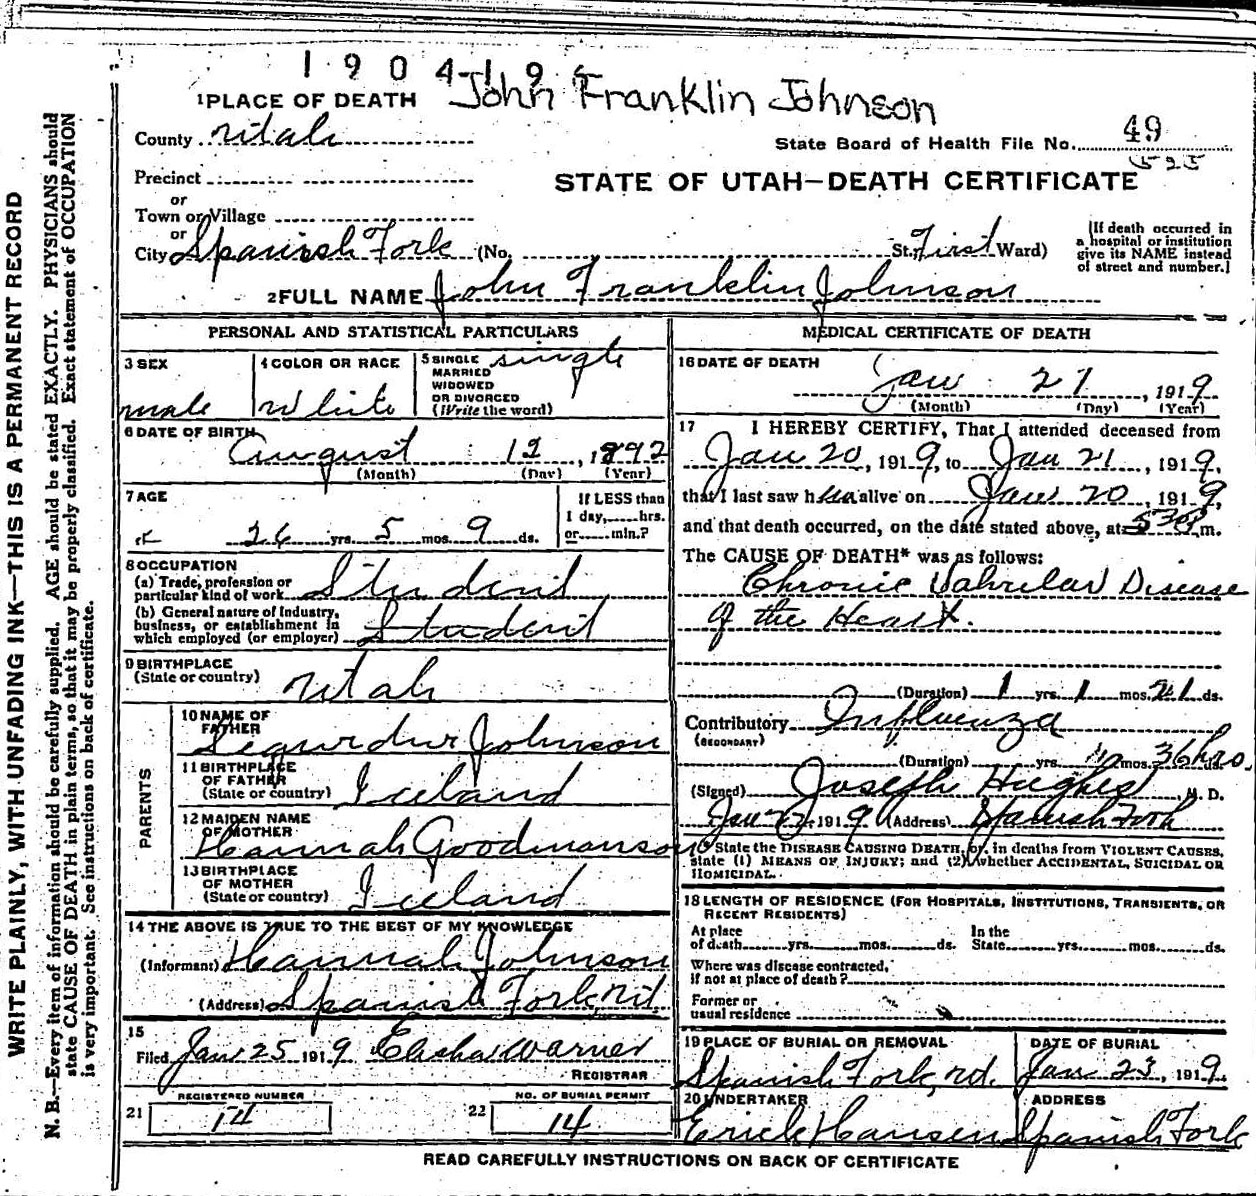 1904-19
John Franklin Johnson
1 PLACE OF DEATH
County Utah
State Board of Health File No. 49
525
Precinct
STATE OF UTAH—DEATH CERTIFICATE
or
Town or Village
or
City Spanish Fork (No. St. First Ward)
[If death occurred in
a hospital or institution
give its NAME instead
of street and number.]
2 FULL NAME John Franklin Johnson
PERSONAL AND STATISTICAL PARTICULARS
3 SEX
male
4 COLOR OR RACE
White
5 SINGLE
MARRIED
WIDOWED
OR DIVORCED
(Write the word)
single
6 DATE OF BIRTH
August 12, 1892
(Month) (Day) (Year)
7 AGE
26 yrs. 5 mos. 9 ds.
If LESS than
1 day,......hrs.
or......min.?
8 OCCUPATION
(a) Trade, profession or
particular kind of work Student
(b) General nature of Industry,
business, or establishment in
which employed (or employer) Student
9 BIRTHPLACE
(State or country) Utah
PARENTS
10 NAME OF
FATHER
Segurdur Johnson
11 BIRTHPLACE
OF FATHER
(State or country) Iceland
12 MAIDEN NAME
OF MOTHER
Hannah Goodmanson
13 BIRTHPLACE
OF MOTHER
(State or country) Iceland
14 THE ABOVE IS TRUE TO THE BEST OF MY KNOWLEDGE
(Informant) Hannah Johnson
(Address) Spanish Fork, Ut.
15
Filed Jan 25 1919 Elisha Warner
REGISTRAR
21 REGISTERED NUMBER
14
22 NO. OF BURIAL PERMIT
14
MEDICAL CERTIFICATE OF DEATH
16 DATE OF DEATH
Jan 21, 1919
(Month) (Day) (Year)
17 I HEREBY CERTIFY, That I attended deceased from
Jan 20, 1919, to Jan 21, 1919,
that I last saw him alive on Jan 20, 1919,
and that death occurred, on the date stated above, at m.
The CAUSE OF DEATH* was as follows:
Chronic Valvular Disease
of the Heart.
(Duration) 1 yrs. 1 mos. 21 ds.
Contributory Influenza
(SECONDARY)
(Duration) yrs. mos. 36 hrs. ds.
(Signed) Joseph Hughes, M. D.
Jan 22, 1919 (Address) Spanish Fork
* State the DISEASE CAUSING DEATH, or, in deaths from VIOLENT CAUSES,
state (1) MEANS OF INJURY; and (2) whether ACCIDENTAL, SUICIDAL OR
HOMICIDAL.
18 LENGTH OF RESIDENCE (FOR HOSPITALS, INSTITUTIONS, TRANSIENTS, OR
RECENT RESIDENTS)
At place
of death......yrs......mos......ds.
In the
State......yrs......mos......ds.
Where was disease contracted,
if not at place of death?
Former or
usual residence
19 PLACE OF BURIAL OR REMOVAL
Spanish Fork, Ut.
DATE OF BURIAL
Jan 23, 1919
20 UNDERTAKER
Erick Hansen
ADDRESS
Spanish Fork
READ CAREFULLY INSTRUCTIONS ON BACK OF CERTIFICATE
WRITE PLAINLY, WITH UNFADING INK—THIS IS A PERMANENT RECORD
N. B.—Every item of information should be carefully supplied. AGE should be stated EXACTLY. PHYSICIANS should
state CAUSE OF DEATH in plain terms, so that it may be properly classified. Exact statement of OCCUPATION
is very important. See instructions on back of certificate.